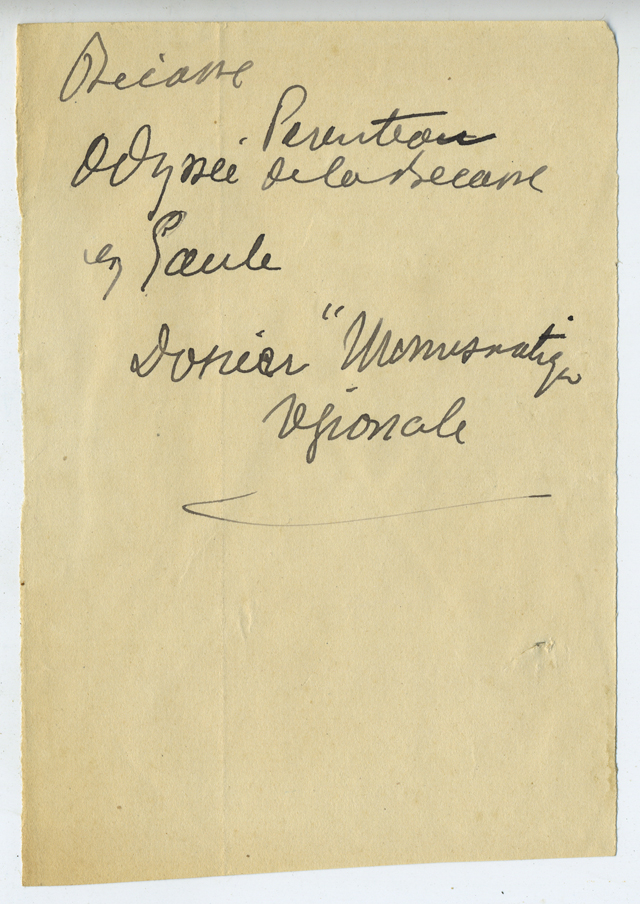 Bécasse
Odyssée de la Bécasse
en Gaule
Dossier "Numismatique
régionale